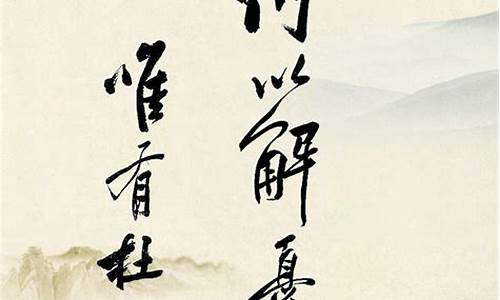 何以解憂
唯有杜